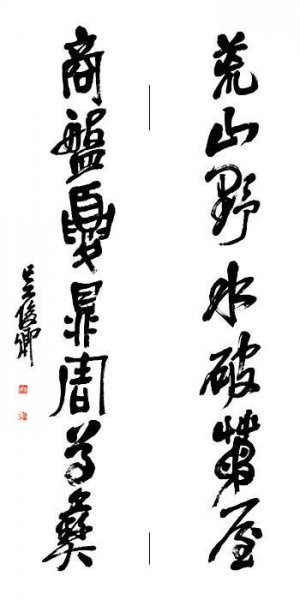 荒山野水破茅屋
商盤夏鼎周尊彝
吳俊卿